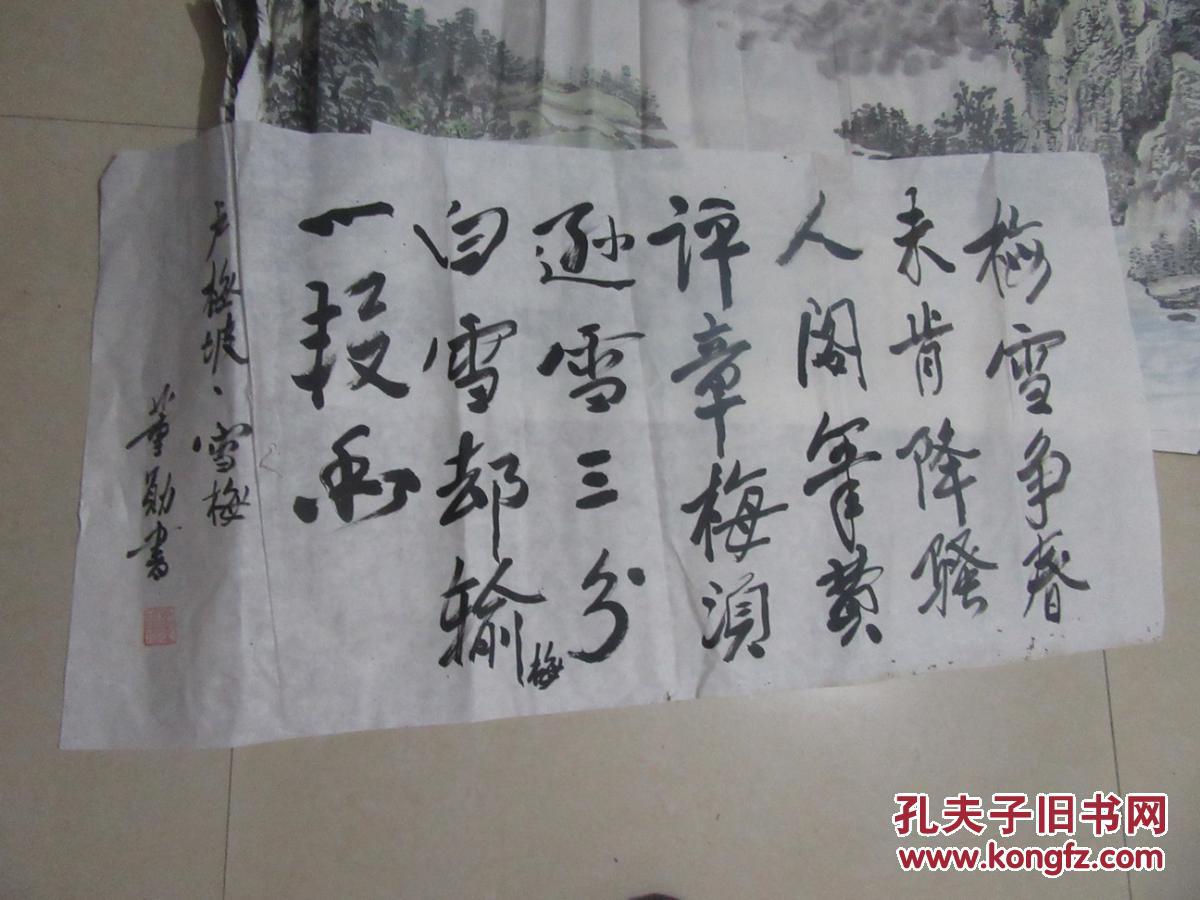 梅雪争春
未肯降骚
人阁笔费
评章梅须
逊雪三分
白雪却输
梅
一段香
卢梅坡、雪梅
董勋书
孔夫子旧书网
www.kongfz.com